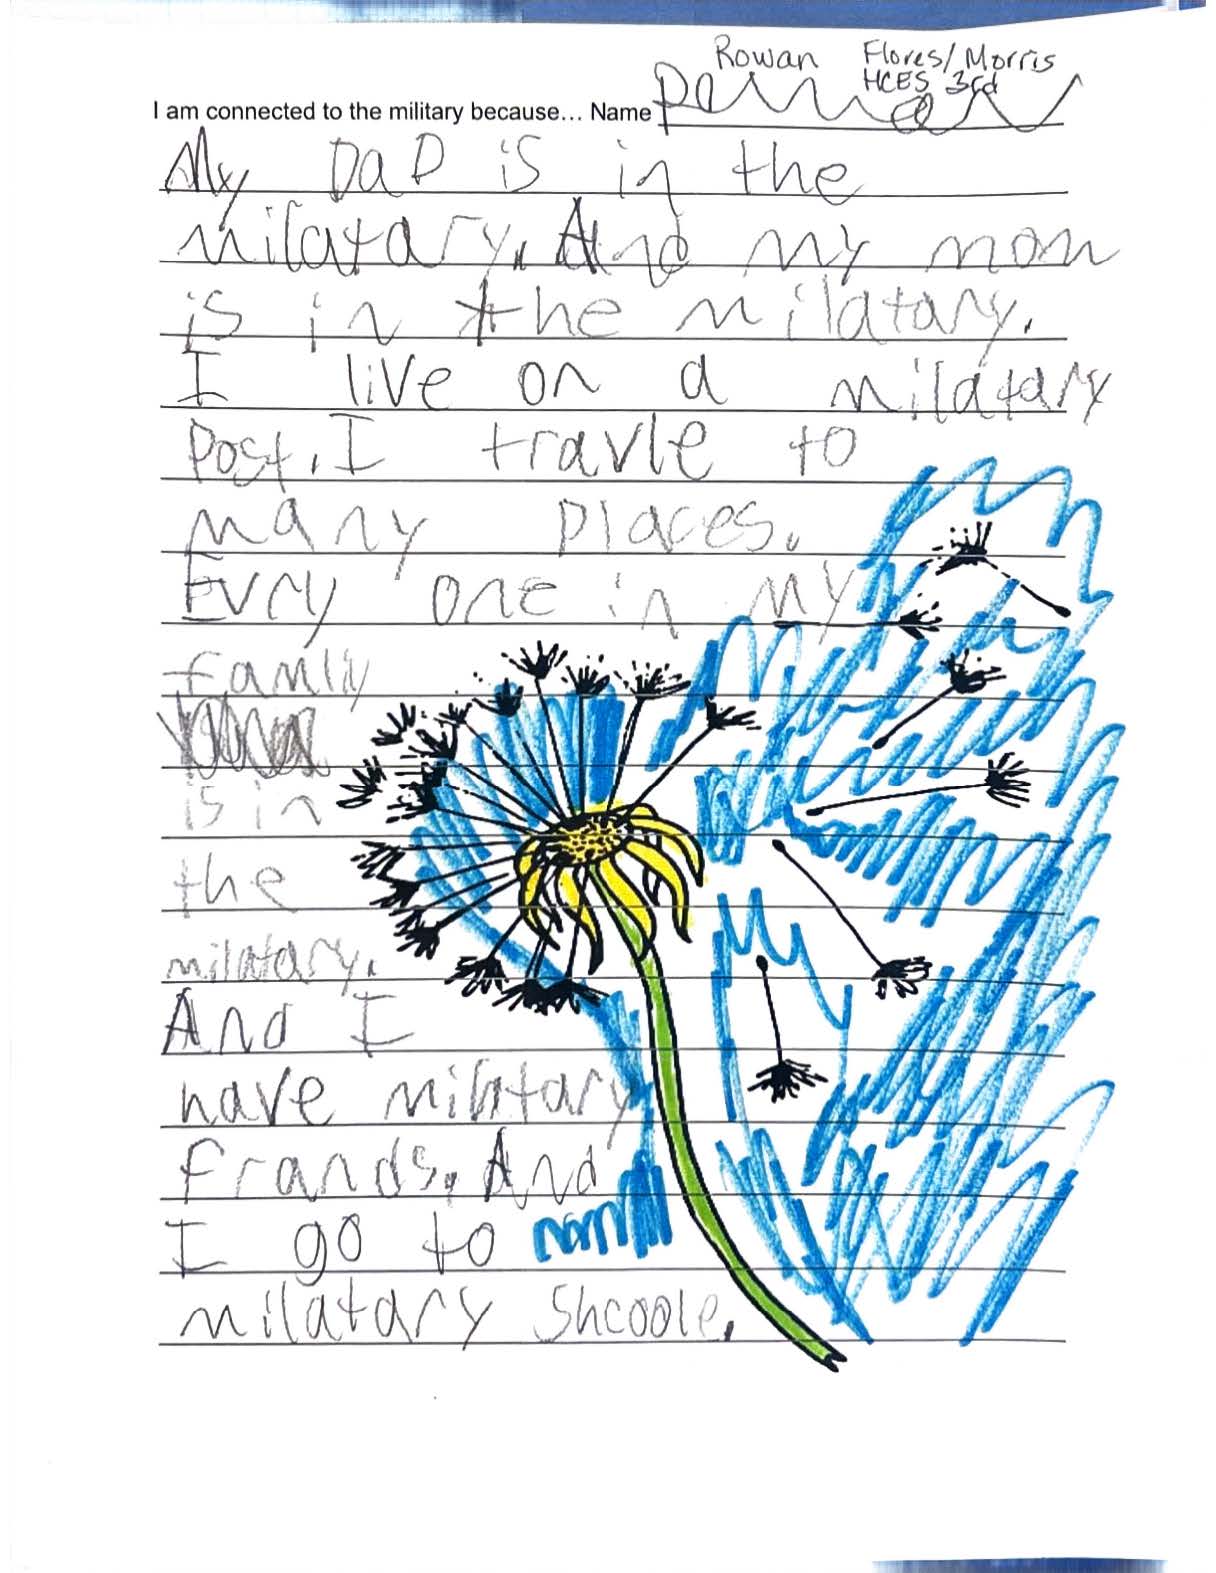 Rowan Flores/Morris
HCES 3rd
I am connected to the military because... Name
My DaD is in the
milatary. And my mom
is in the milatary.
I live on a milatary
Post. I travle to
many places.
Evry one in my
famliy
is in
the
milatary.
And I
have milatary
frands. And
I go to
milatary Shcoole.